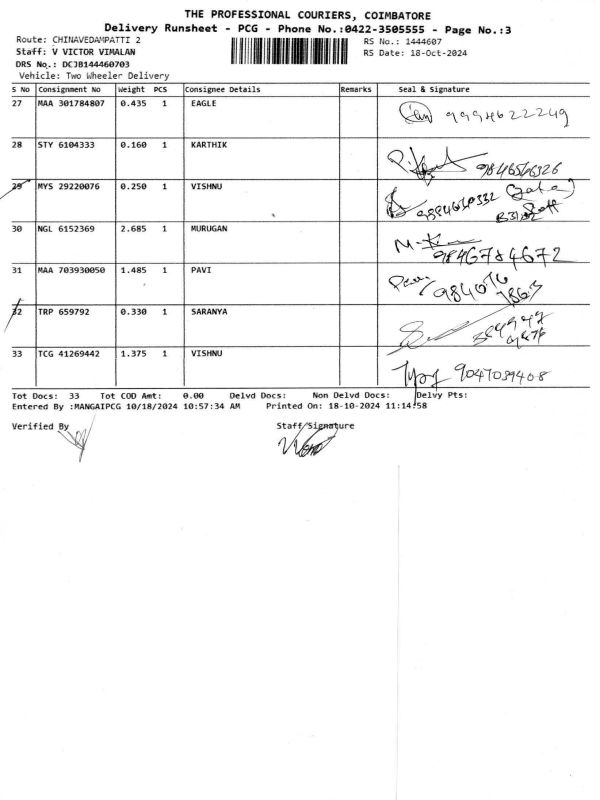 THE PROFESSIONAL COURIERS, COIMBATORE
Delivery Runsheet - PCG - Phone No.:0422-3505555 - Page No.:3
Route: CHINAVEDAMPATTI 2 RS No.: 1444607
Staff: V VICTOR VIMALAN RS Date: 18-Oct-2024
DRS No.: DCJB144460703
Vehicle: Two Wheeler Delivery
S No Consignment No Weight PCS Consignee Details Remarks Seal & Signature
27 MAA 301784807 0.435 1 EAGLE 9994622249
28 STY 6104333 0.160 1 KARTHIK
29 MYS 29220076 0.250 1 VISHNU
30 NGL 6152369 2.685 1 MURUGAN 9846784672
31 MAA 703930050 1.485 1 PAVI
32 TRP 659792 0.330 1 SARANYA
33 TCG 41269442 1.375 1 VISHNU 9047039408
Tot Docs: 33 Tot COD Amt: 0.00 Delvd Docs: Non Delvd Docs: Delvy Pts:
Entered By :MANGAIPCG 10/18/2024 10:57:34 AM Printed On: 18-10-2024 11:14:58
Verified By Staff/Signature